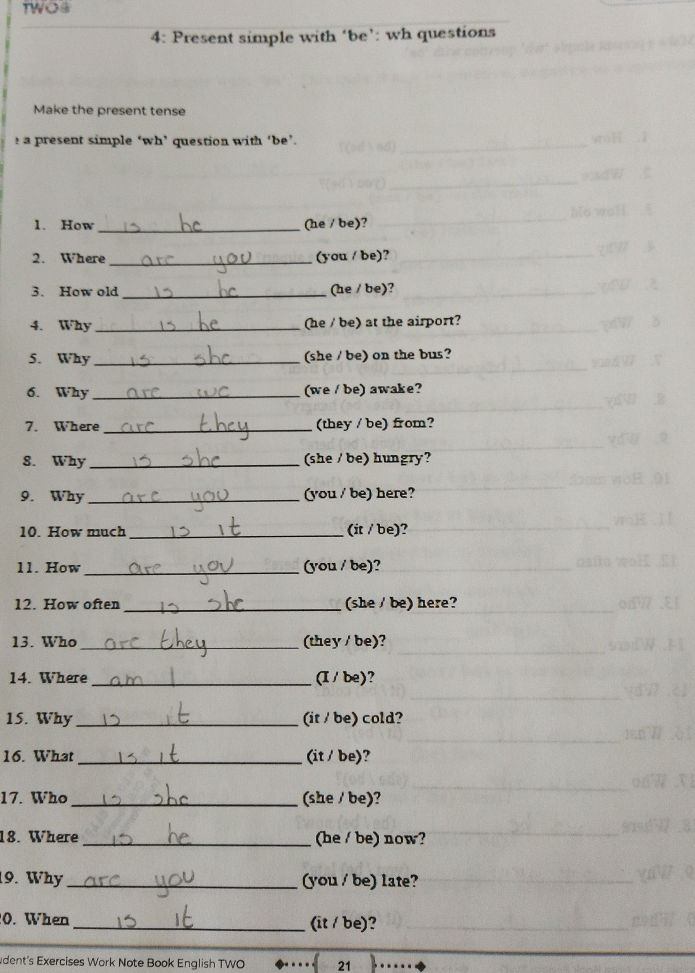 TWO
4: Present simple with 'be': wh questions
Make the present tense
a present simple 'wh' question with 'be'.
1. How is he (he / be)?
2. Where are you (you / be)?
3. How old is he (he / be)?
4. Why is he (he / be) at the airport?
5. Why is she (she / be) on the bus?
6. Why are we (we / be) awake?
7. Where are they (they / be) from?
8. Why is she (she / be) hungry?
9. Why are you (you / be) here?
10. How much is it (it / be)?
11. How are you (you / be)?
12. How often is she (she / be) here?
13. Who are they (they / be)?
14. Where am I (I / be)?
15. Why is it (it / be) cold?
16. What is it (it / be)?
17. Who is she (she / be)?
18. Where is he (he / be) now?
19. Why are you (you / be) late?
0. When is it (it / be)?
udent's Exercises Work Note Book English TWO 21